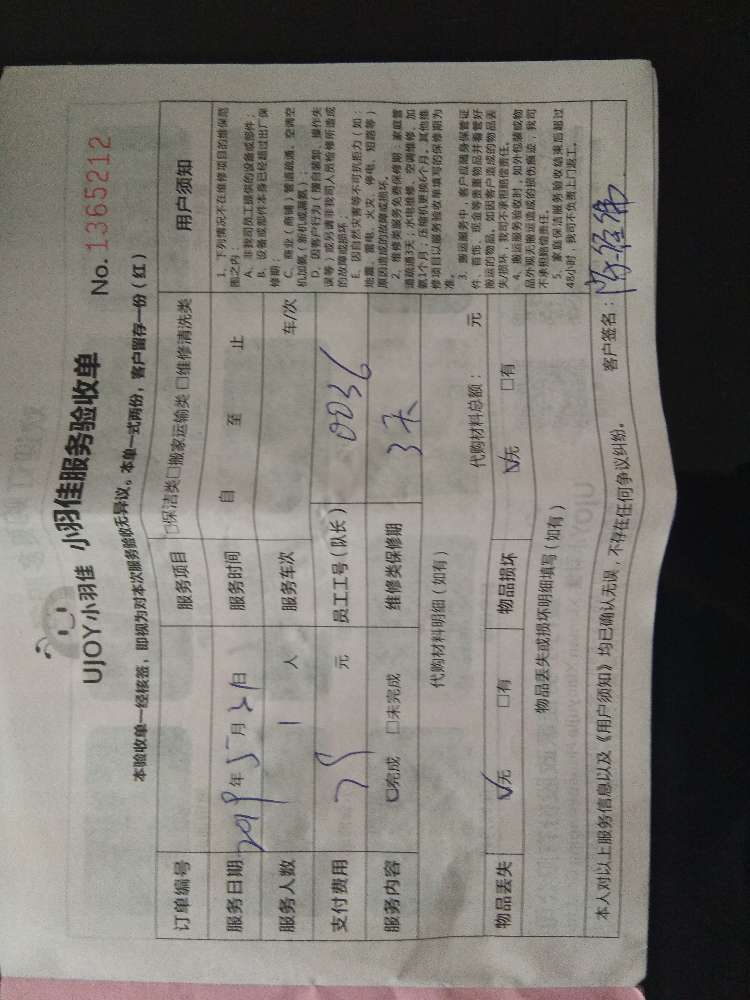 UJOY小羽佳 小羽佳服务验收单
No. 1365212
本验收单一经核签，即视为对本次服务验收无异议。本单一式两份，客户留存一份（红）
订单编号 服务项目 □保洁类□搬家运输类 □维修清洗类
服务日期 2019年5月21日 服务时间 自 至 止
服务人数 1 人 服务车次 车/次
支付费用 元 员工工号（队长） 0036
服务内容 □完成 □未完成 维修类保修期 3天
代购材料明细（如有） 代购材料总额： 元
物品丢失 ☑无 □有 物品损坏 ☑无 □有
物品丢失或损坏明细填写（如有）
用户须知
1、下列情况不在维修项目的维保范
围之内：
A、非我司员工提供的设备或部件；
B、设备或部件本身已经超过出厂保
修期；
C、商业（商铺）管道疏通、空调空
机加氨（新机或漏氨）；
D、因客户行为（擅自装卸、操作失
误等）或另请非我司人员检修所造成
的故障或损坏；
E、因自然灾害等不可抗拒力（如：
地震、雷电、火灾、停电、短路等）
原因造成的故障或损坏。
2、维修类服务免费保修期：家庭管
道疏通3天；水电维修、空调维修、加
氨1个月；压缩机更换6个月。其他维
修项目以服务验收单填写的保修期为
准。
3、搬运服务中，客户应随身保管证
件、首饰、现金等贵重物品并看管好
搬运的物品，如因客户造成的物品丢
失/损坏，我司不承担赔偿责任。
4、搬运服务验收时，如外包装或物
品外观无搬运造成的损伤痕迹，我司
不承担赔偿责任。
5、家庭保洁服务验收结束后超过
48小时，我司不负责上门返工。
本人对以上服务信息以及《用户须知》均已确认无误，不存在任何争议纠纷。 客户签名：